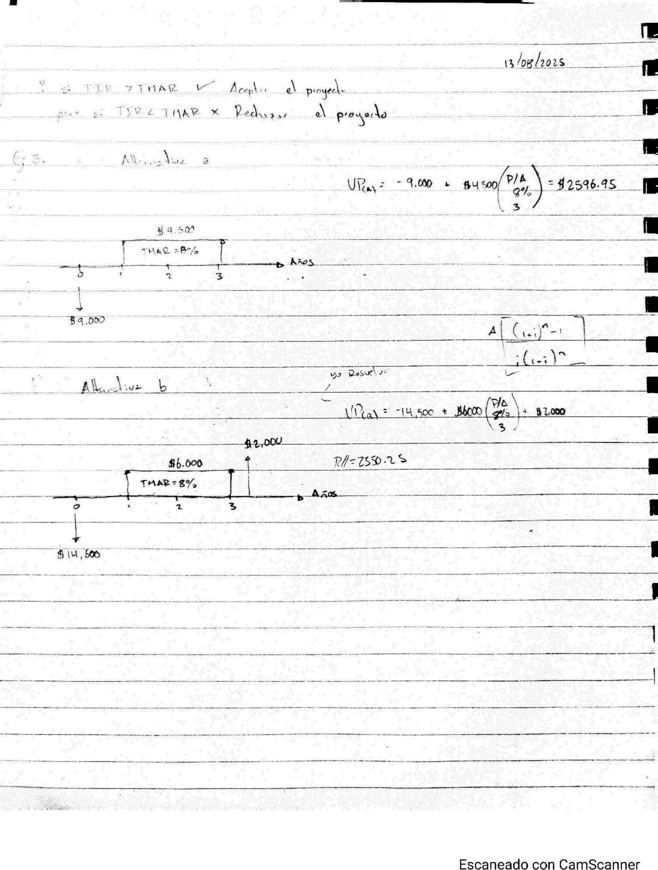 13/08/2025
si TIR > TMAR ✓ Aceptar el proyecto
pero si TIR < TMAR × Rechazar el proyecto
Ej 3. Alternativa a
VP(A) = - 9.000 + $4500 (P/A 8% 3) = $2596.95
$4.500
TMAR = 8%
Años
0 1 2 3
$9.000
A [(1+i)^n - 1 / i(1+i)^n]
Alternativa b
VP(a) = -14,500 + $6000 (P/A 8% 3) + $2.000
$2,000
R// = 2550.25
$6.000
TMAR = 8%
Años
0 1 2 3
$14,500
Escaneado con CamScanner